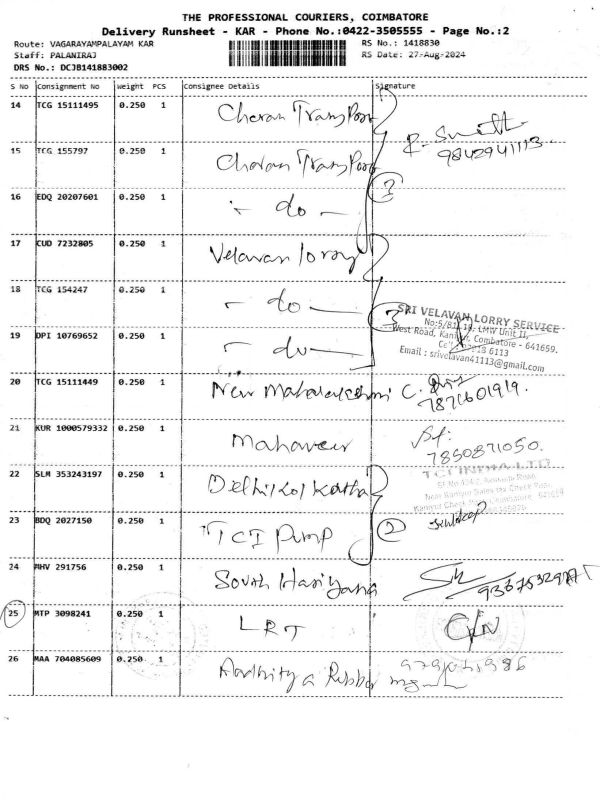 THE PROFESSIONAL COURIERS, COIMBATORE
Delivery Runsheet - KAR - Phone No.:0422-3505555 - Page No.:2
Route: VAGARAYAMPALAYAM KAR
RS No.: 1418830
Staff: PALANIRAJ
RS Date: 27-Aug-2024
DRS No.: DCJB141883002
S No Consignment No Weight PCS Consignee Details Signature
14 TCG 15111495 0.250 1 Cheran Transport
R. 
9842941113
15 TCG 155797 0.250 1 Cheran Transport
3
16 EDQ 20207601 0.250 1 - do -
17 CUD 7232805 0.250 1 Velavan lorry
18 TCG 154247 0.250 1 - do -
3
SRI VELAVAN LORRY SERVICE
LMW Unit II,
West Road, Coimbatore - 641659.
Email : srivelavan41113@gmail.com
19 DPI 10769652 0.250 1 - do -
20 TCG 15111449 0.250 1 New Mahalakshmi C.
7871601919.
21 KUR 1000579332 0.250 1 Mahaveer
7850871050.
TCI INDIA LTD
22 SLM 353243197 0.250 1 Delhi Kolkatha
2
23 BDQ 2027150 0.250 1 TCI Pump
24 MHV 291756 0.250 1 South Hariyana
25 MTP 3098241 0.250 1 LRT C/N
26 MAA 704085609 0.250 1 Aadhitya Rubber